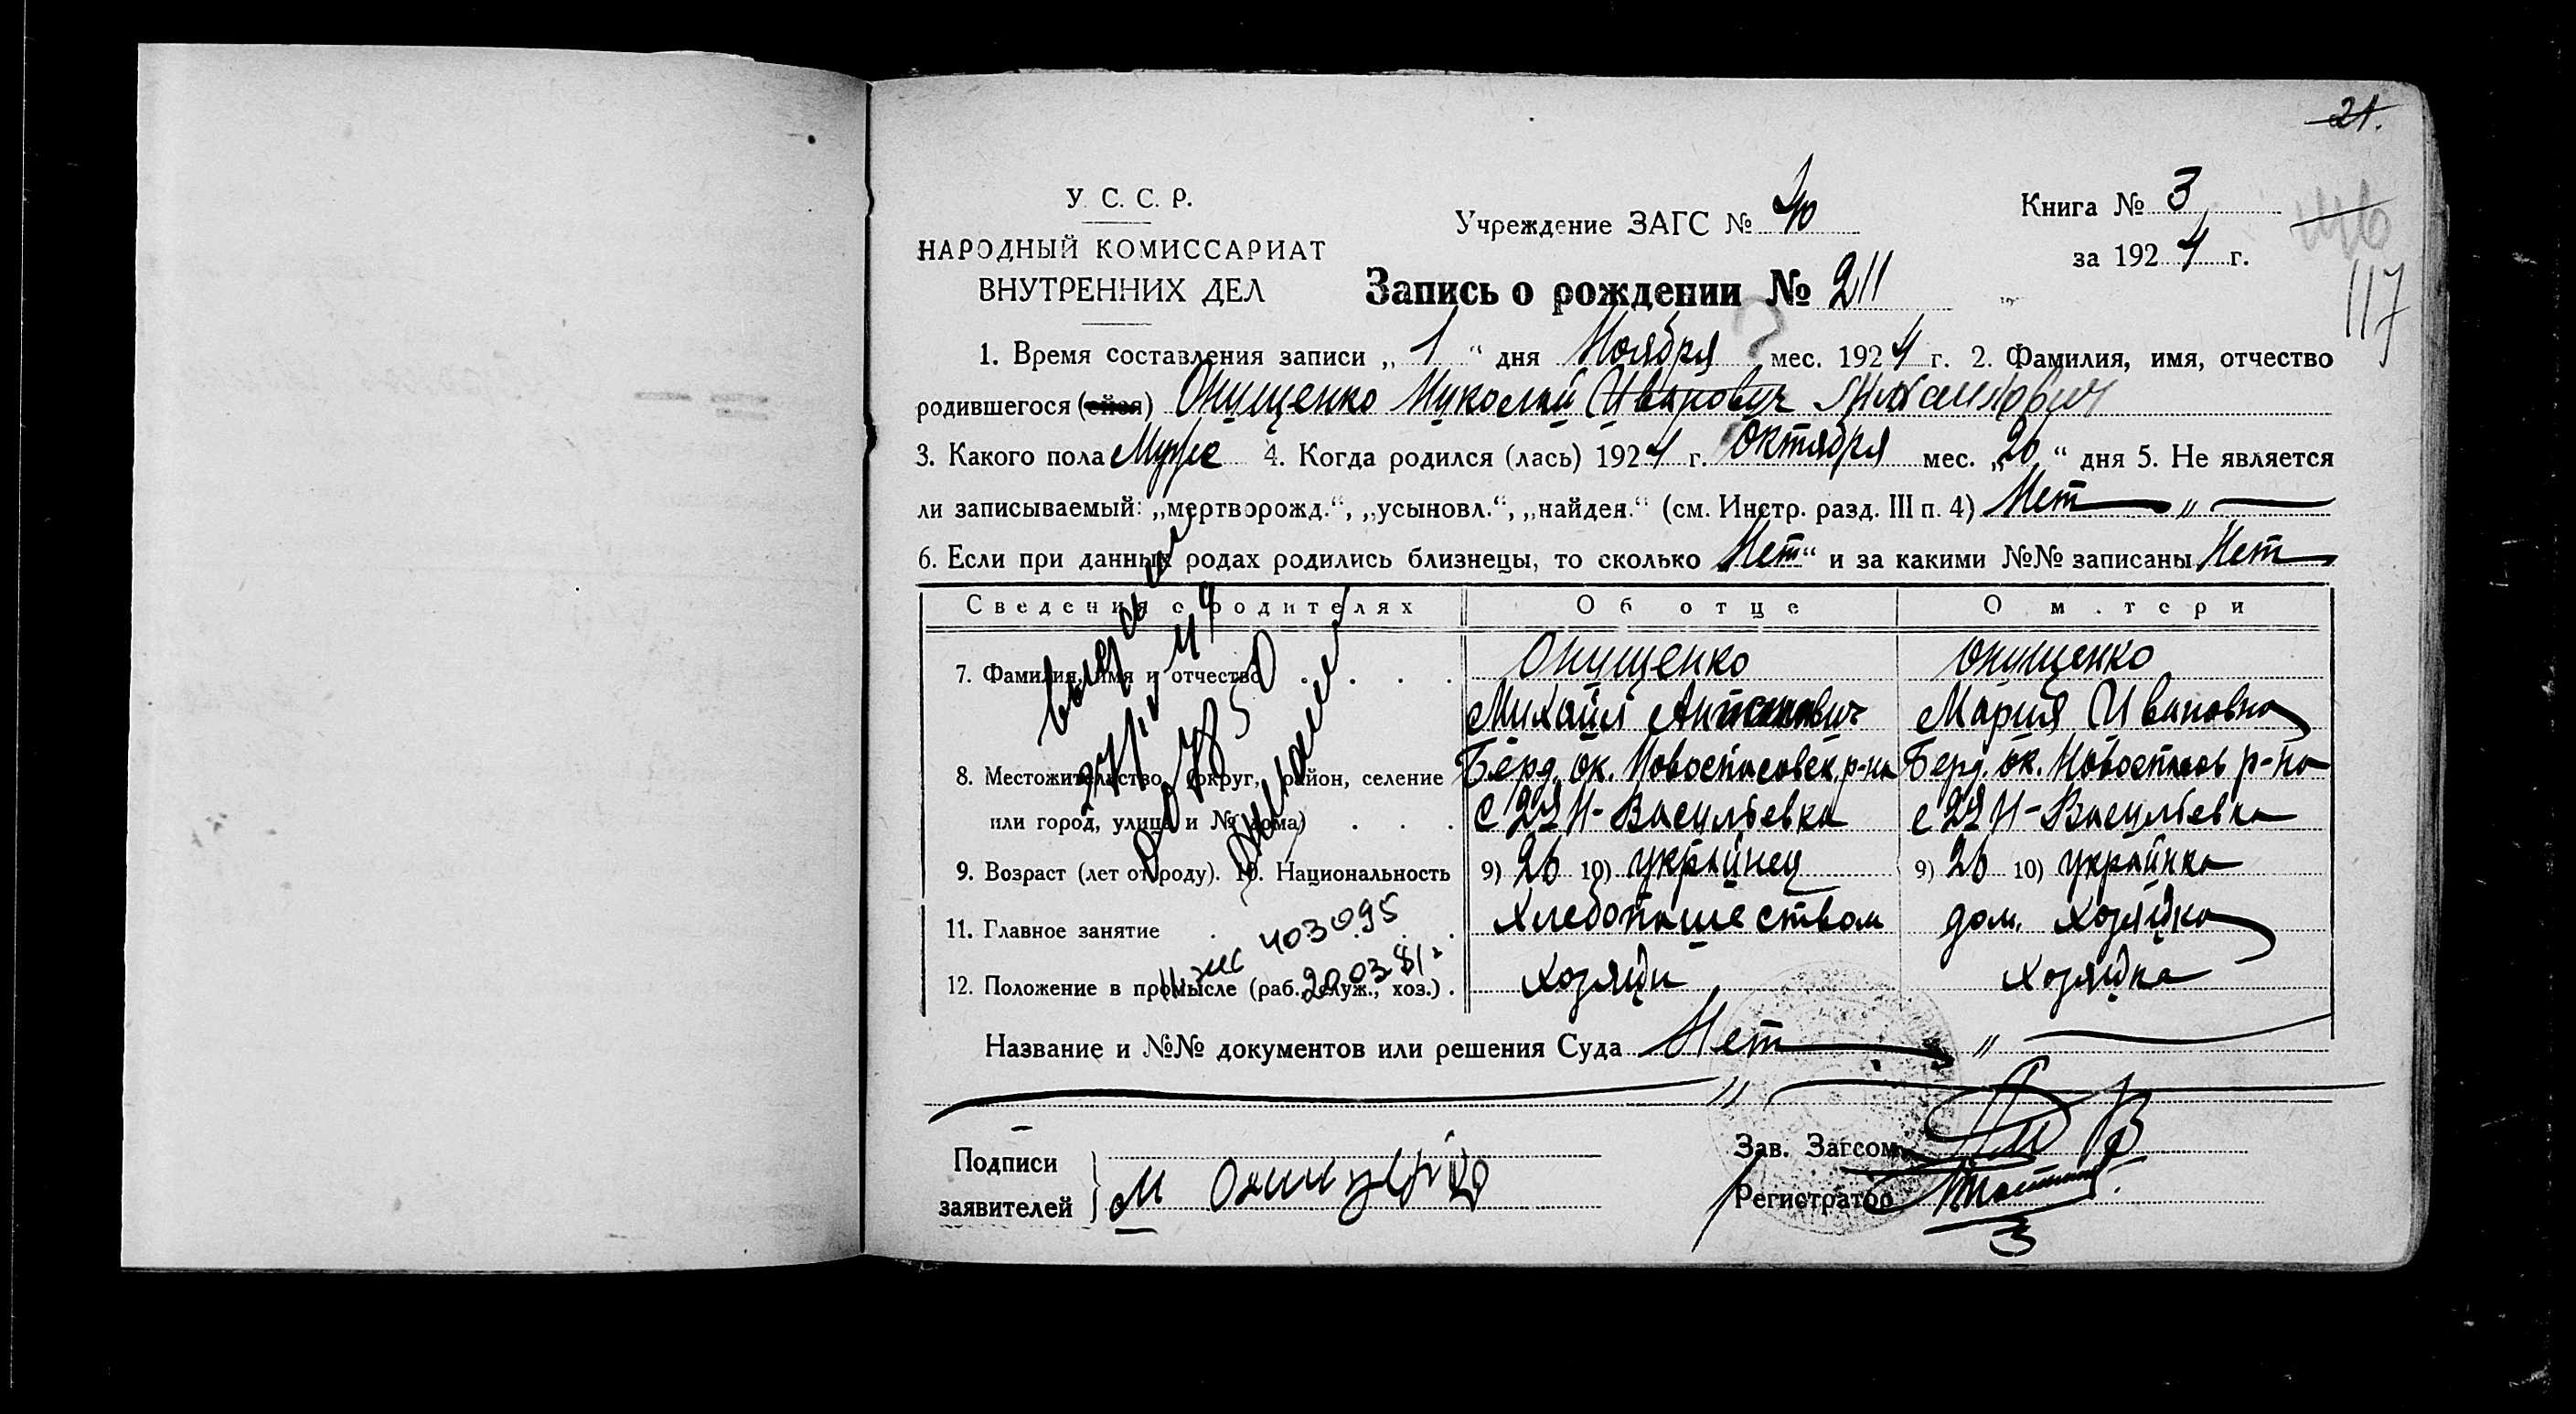 21.
У. С. С. Р.
НАРОДНЫЙ КОМИССАРИАТ
ВНУТРЕННИХ ДЕЛ
Учреждение ЗАГС № 40
Книга № 3
за 1924 г.
116
117
Запись о рождении № 211
1. Время составления записи „ 1 “ дня Ноября мес. 1924 г. 2. Фамилия, имя, отчество
родившегося (ейся) Онущенко Николай Иванович Михайлович
3. Какого пола Мужс 4. Когда родился (лась) 1924 г. Октября мес. „26“ дня 5. Не является
ли записываемый: „мертворожд.“, „усыновл.“, „найден.“ (см. Инстр. разд. III п. 4) Нет „
6. Если при данных родах родились близнецы, то сколько Нет “ и за какими №№ записаны Нет
Сведения о родителях Об отце О матери
7. Фамилия, имя и отчество Онущенко Онущенко
Михаил Антонович Мария Ивановна
8. Местожительство (округ, район, селение Берд. ок. Новоспасовск. р-на Берд. ок. Новоспасов р-на
или город, улица и № дома) с 2я Н-Васильевка с 2я Н-Васильевка
9. Возраст (лет от роду). 10. Национальность 9) 26 10) украинец 9) 26 10) украинка
11. Главное занятие хлебопашеством дом. хозяйка
403095
12. Положение в промысле (раб., служ., хоз.) хозяин хозяйка
20.03.81г
Название и №№ документов или решения Суда Нет „
„
Подписи
заявителей
М
Зав. Загсом
Регистратор